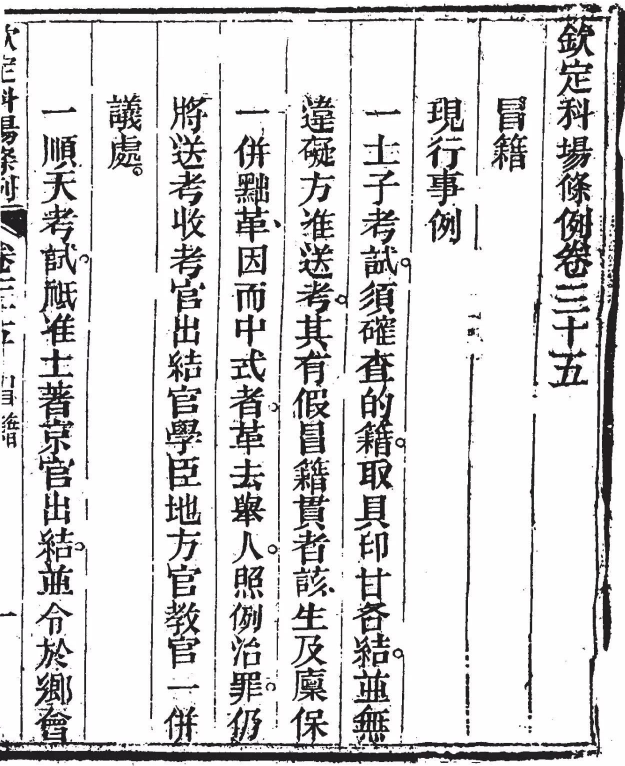 欽定科場條例卷三十五
冒籍
現行事例
一士子考試。須確查的籍。取具印甘各結。並無
違礙方准送考。其有假冒籍貫者該、生及廩保
一併黜革、因而中式者。革去舉人。照例治罪。仍
將送考收考官出結官學臣地方官教官一併
議處。
一順天考試。祗准土著京官出結。並令於鄉會
欽定科場條例 卷三十五 冒籍 一